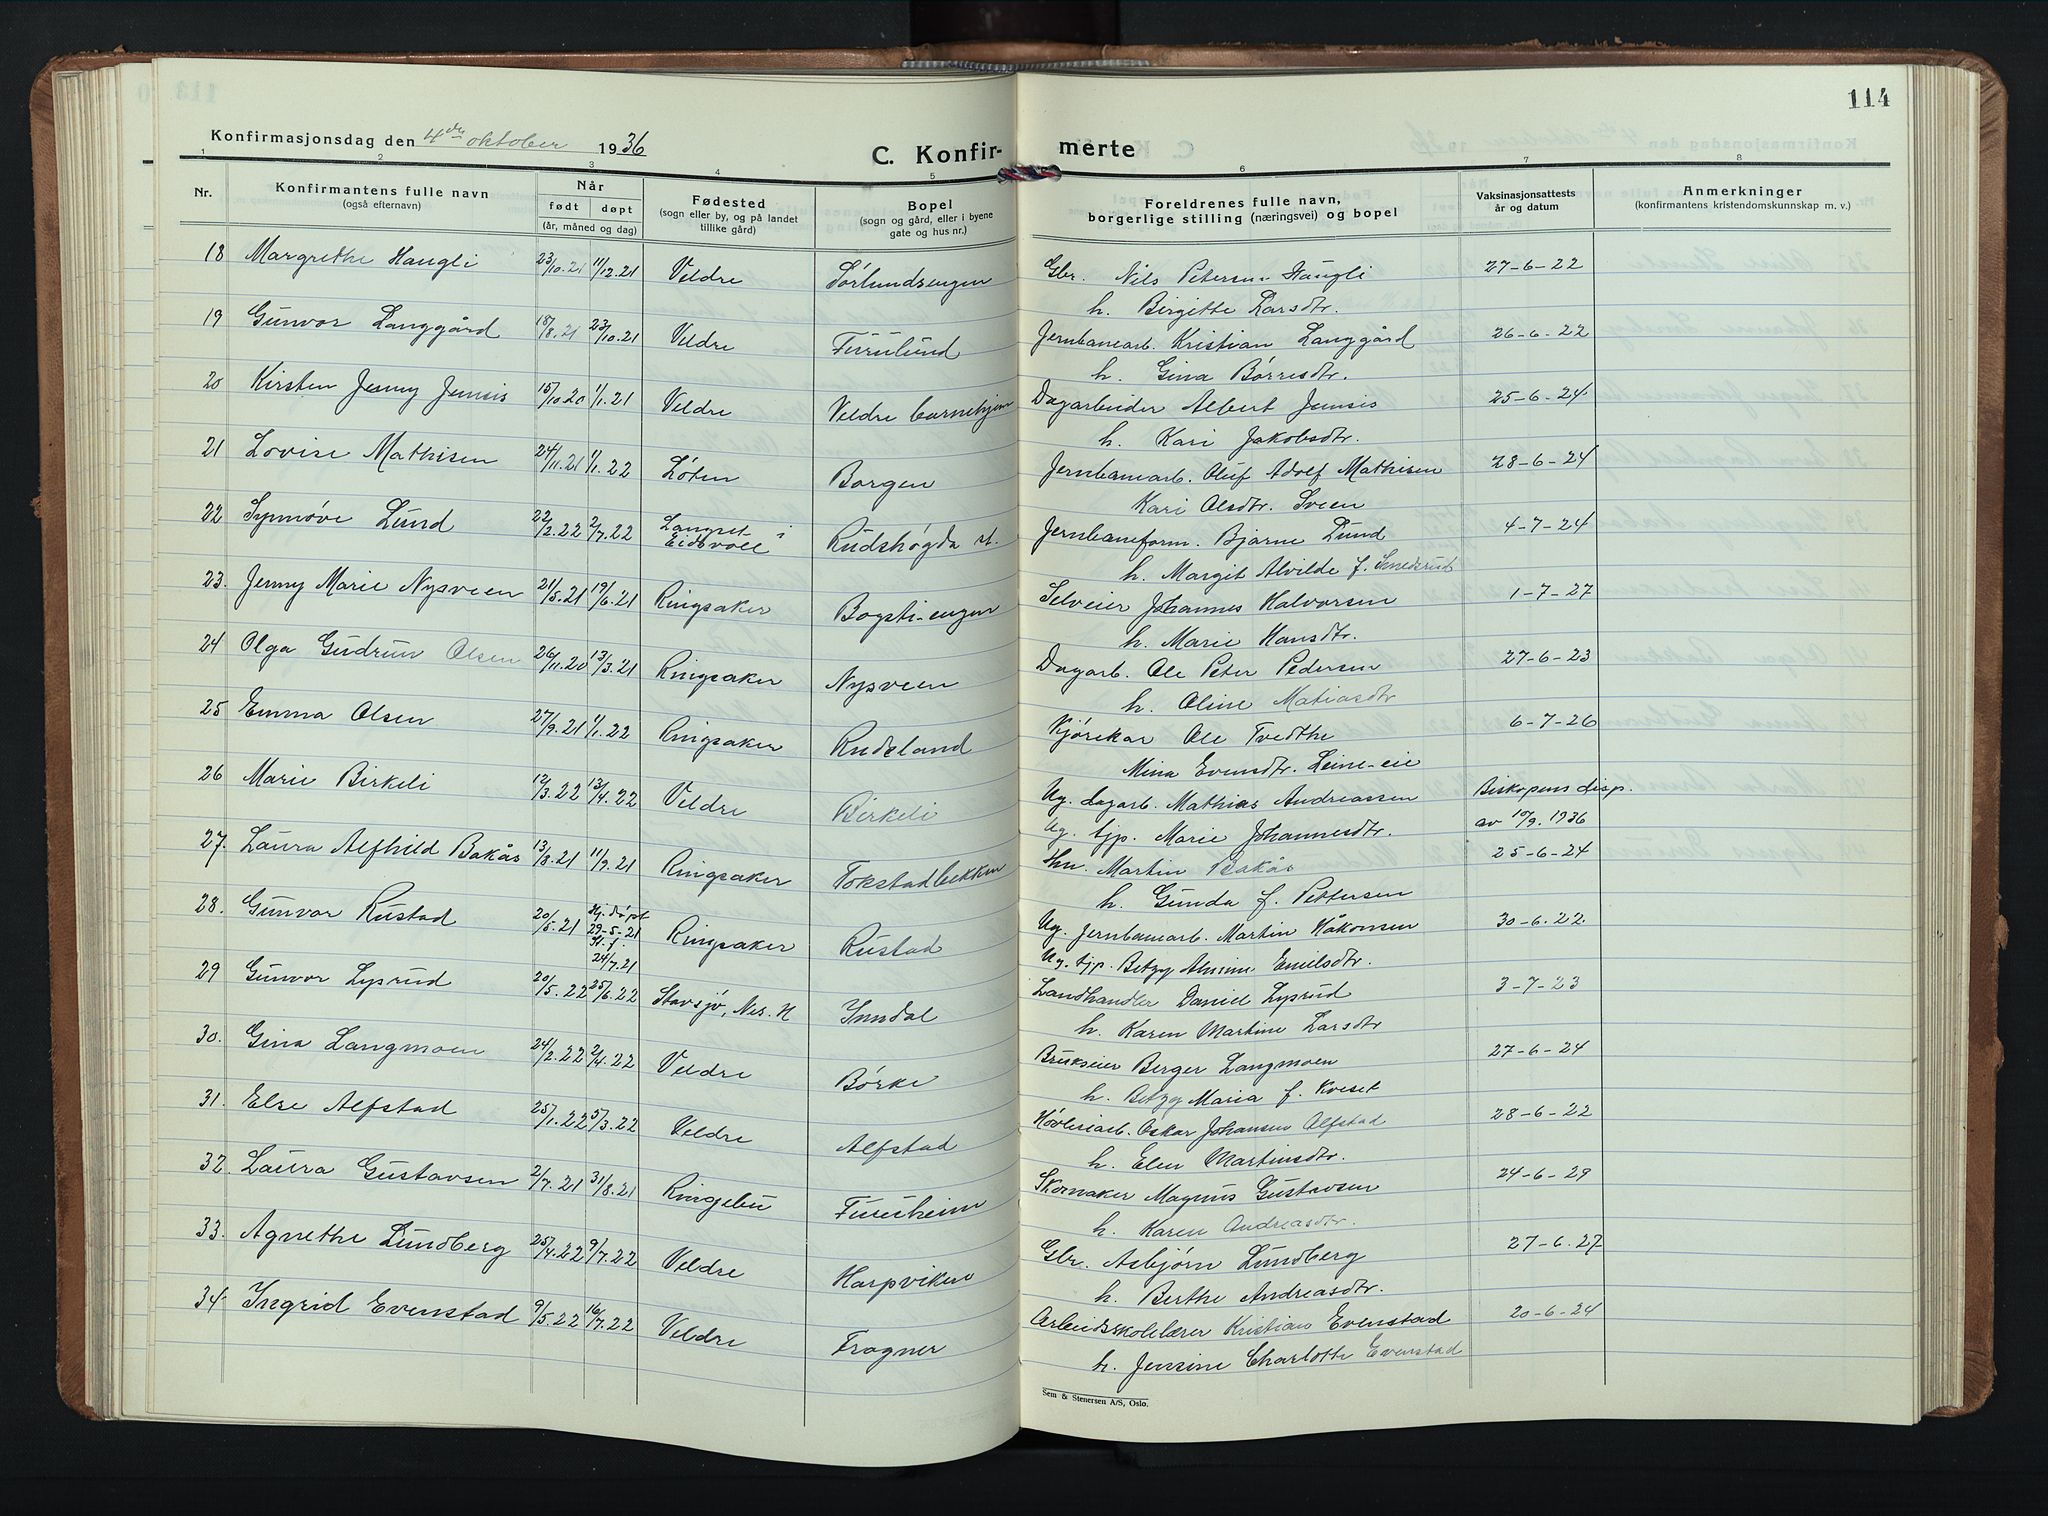 114
Konfirmasjonsdag den 4de oktober 1936
C. Konfir- merte
1 2 3 4 5 6 7 8
Nr.
Konfirmantens fulle navn
(også efternavn)
Når
født døpt
(år, måned og dag)
Fødested
(sogn eller by, og på landet
tillike gård)
Bopel
(sogn og gård, eller i byene
gate og hus nr.)
Foreldrenes fulle navn,
borgerlige stilling (næringsvei) og bopel
Vaksinasjonsattests
år og datum
Anmerkninger
(konfirmantens kristendomskunnskap m. v.)
18 Margrethe Haugli 23/10.21 11/12.21 Veldre Sørlundsengen Gbr. Nils Petersen Haugli 27-6-22
h. Birgitte Larsdtr.
19 Gunvor Langgård 18/8.21 23/10.21 Veldre Furulund Jernbanearb. Kristian Langgård 26-6-22
h. Gina Børresdtr.
20 Kirsten Jenny Jensis 15/10.20 1/1.21 Veldre Veldre barnehjem Dagarbeider Albert Jensis 25-6-24
h. Kari Jakobsdtr.
21 Lovise Mathisen 24/11.21 1/1.22 Løten Borgen Jernbanearb. Oluf Adolf Mathisen 28-6-24
Kari Olsdtr. Sveen
22 Synnøve Lund 22/2.22 2/7.22 Langset i Eidsvoll Rudshøgda st. Jernbaneform. Bjarne Lund 4-7-24
h. Margit Alvilde f. Smedsrud
23. Jenny Marie Nysveen 21/5.21 19/6.21 Ringsaker Bogsti-engen Selveier Johannes Halvorsen 1-7-27
h. Marie Hansdtr.
24 Olga Gudrun Olsen 26/11.20 13/3.21 Ringsaker Nysveen Dagarb. Ole Peter Pedersen 27-6-23
h. Oline Matiasdtr
25 Emma Olsen 27/9.21 1/1.22 Ringsaker Rudsland Kjørekar Ole Tvedthe 6-7-26
Mina Evensdtr. Leine-eie
26 Marie Birkeli 12/3.22 13/4.22 Veldre Birkeli Ug. Dagarb. Mathias Andreassen Biskopens disp.
Ug. tjp. Marie Johannesdtr. av 10/9.1936
27. Laura Alfhild Bakås 13/8.21 11/9.21 Ringsaker Tokstadbekken Hm. Martin Bakås 25-6-24
h. Gunda f. Pettersen
28. Gunvor Rustad 20/5.21 Hj. døpt 29-5-21 st. f. 24/7.21 Ringsaker Rustad Ug. Jernbanearb. Martin Håkonsen 30-6.22
Ug. tjp. Betzy Emilsdtr.
29 Gunvor Lysrud 20/5.22 25/6.22 Stavsjø, Nes. H Inndal Landhandler Daniel Lysrud 3-7-23
h. Karen Martine Larsdtr
30. Gina Langmoen 24/2.22 2/4.22 Veldre Børke Brukseier Berger Langmoen 27-6-24
h. Betzy Maria f. Kveset
31. Else Alfstad 25/1.22 5/3.22 Veldre Alfstad Høvleriarb. Oskar Johansen Alfstad 28-6-22
h. Elen Martinsdtr.
32. Laura Gustavsen 2/7.21 31/8.21 Ringebu Furuheim Skomaker Magnus Gustavsen 24-6-29
h. Karen Andreasdtr.
33. Agnethe Lundberg 25/4.22 9/7.22 Veldre Harpviken Gbr. Asbjørn Lundberg 27-6.27
h. Berthe Andreasdtr.
34. Ingrid Evenstad 9/5.22 16/7.22 Veldre Frogner Arbeidsskolelærer Kristian Evenstad 20-6-24
h. Jensine Charlotte Evenstad
Sem & Stenersen A/S, Oslo.